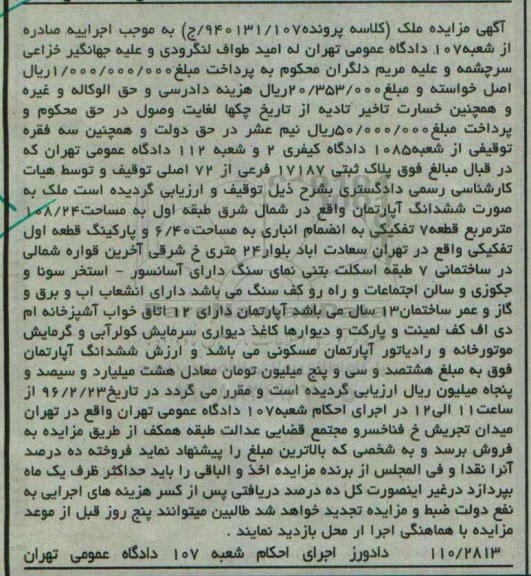 آگهی مزایده ملک (کلاسه پرونده۹۴۰۱۳۱/۱۰۷/ج) به موجب اجراییه صادره
از شعبه۱۰۷ دادگاه عمومی تهران له امید طواف لنگرودی و علیه جهانگیر خزاعی
سرچشمه و علیه مریم دلگران محکوم به پرداخت مبلغ۱/۰۰۰/۰۰۰/۰۰۰ریال
اصل خواسته و مبلغ۲۰/۳۵۳/۰۰۰ریال هزینه دادرسی و حق الوکاله و غیره
و همچنین خسارت تاخیر تادیه از تاریخ چکها لغایت وصول در حق محکوم و
پرداخت مبلغ۵۰/۰۰۰/۰۰۰ریال نیم عشر در حق دولت و همچنین سه فقره
توقیفی از شعبه۱۰۸۵ دادگاه کیفری ۲ و شعبه ۱۱۲ دادگاه عمومی تهران که
در قبال مبالغ فوق پلاک ثبتی ۱۷۱۸۷ فرعی از ۷۲ اصلی توقیف و توسط هیات
کارشناسی رسمی دادگستری بشرح ذیل توقیف و ارزیابی گردیده است ملک به
صورت ششدانگ آپارتمان واقع در شمال شرق طبقه اول به مساحت۱۰۸/۲۴
مترمربع قطعه۷ تفکیکی به انضمام انباری به مساحت۶/۴۰ و پارکینگ قطعه اول
تفکیکی واقع در تهران سعادت اباد بلوار۲۴ متری خ شرقی آخرین قواره شمالی
در ساختمانی ۷ طبقه اسکلت بتنی نمای سنگ دارای آسانسور - استخر سونا و
جکوزی و سالن اجتماعات و راه رو کف سنگ می باشد دارای انشعاب اب و برق و
گاز و عمر ساختمان۱۳ سال می باشد آپارتمان دارای ۱۲ اتاق خواب آشپزخانه ام
دی اف کف لمینت و پارکت و دیوارها کاغذ دیواری سرمایش کولرآبی و گرمایش
موتورخانه و رادیاتور آپارتمان مسکونی می باشد و ارزش ششدانگ آپارتمان
فوق به مبلغ هشتصد و سی و پنج میلیون تومان معادل هشت میلیارد و سیصد و
پنجاه میلیون ریال ارزیابی گردیده است و مقرر می گردد در تاریخ۹۶/۲/۲۳ از
ساعت۱۱ الی۱۲ در اجرای احکام شعبه۱۰۷ دادگاه عمومی تهران واقع در تهران
میدان تجریش خ فناخسرو مجتمع قضایی عدالت طبقه همکف از طریق مزایده به
فروش برسد و به شخصی که بالاترین مبلغ را پیشنهاد نماید فروخته ده درصد
آنرا نقدا و فی المجلس از برنده مزایده اخذ و الباقی را باید حداکثر ظرف یک ماه
بپردازد درغیر اینصورت کل ده درصد دریافتی پس از کسر هزینه های اجرایی به
نفع دولت ضبط و مزایده تجدید خواهد شد طالبین میتوانند پنج روز قبل از موعد
مزایده با هماهنگی اجرا از محل بازدید نمایند .
۱۱۰/۲۸۱۳ دادورز اجرای احکام شعبه ۱۰۷ دادگاه عمومی تهران